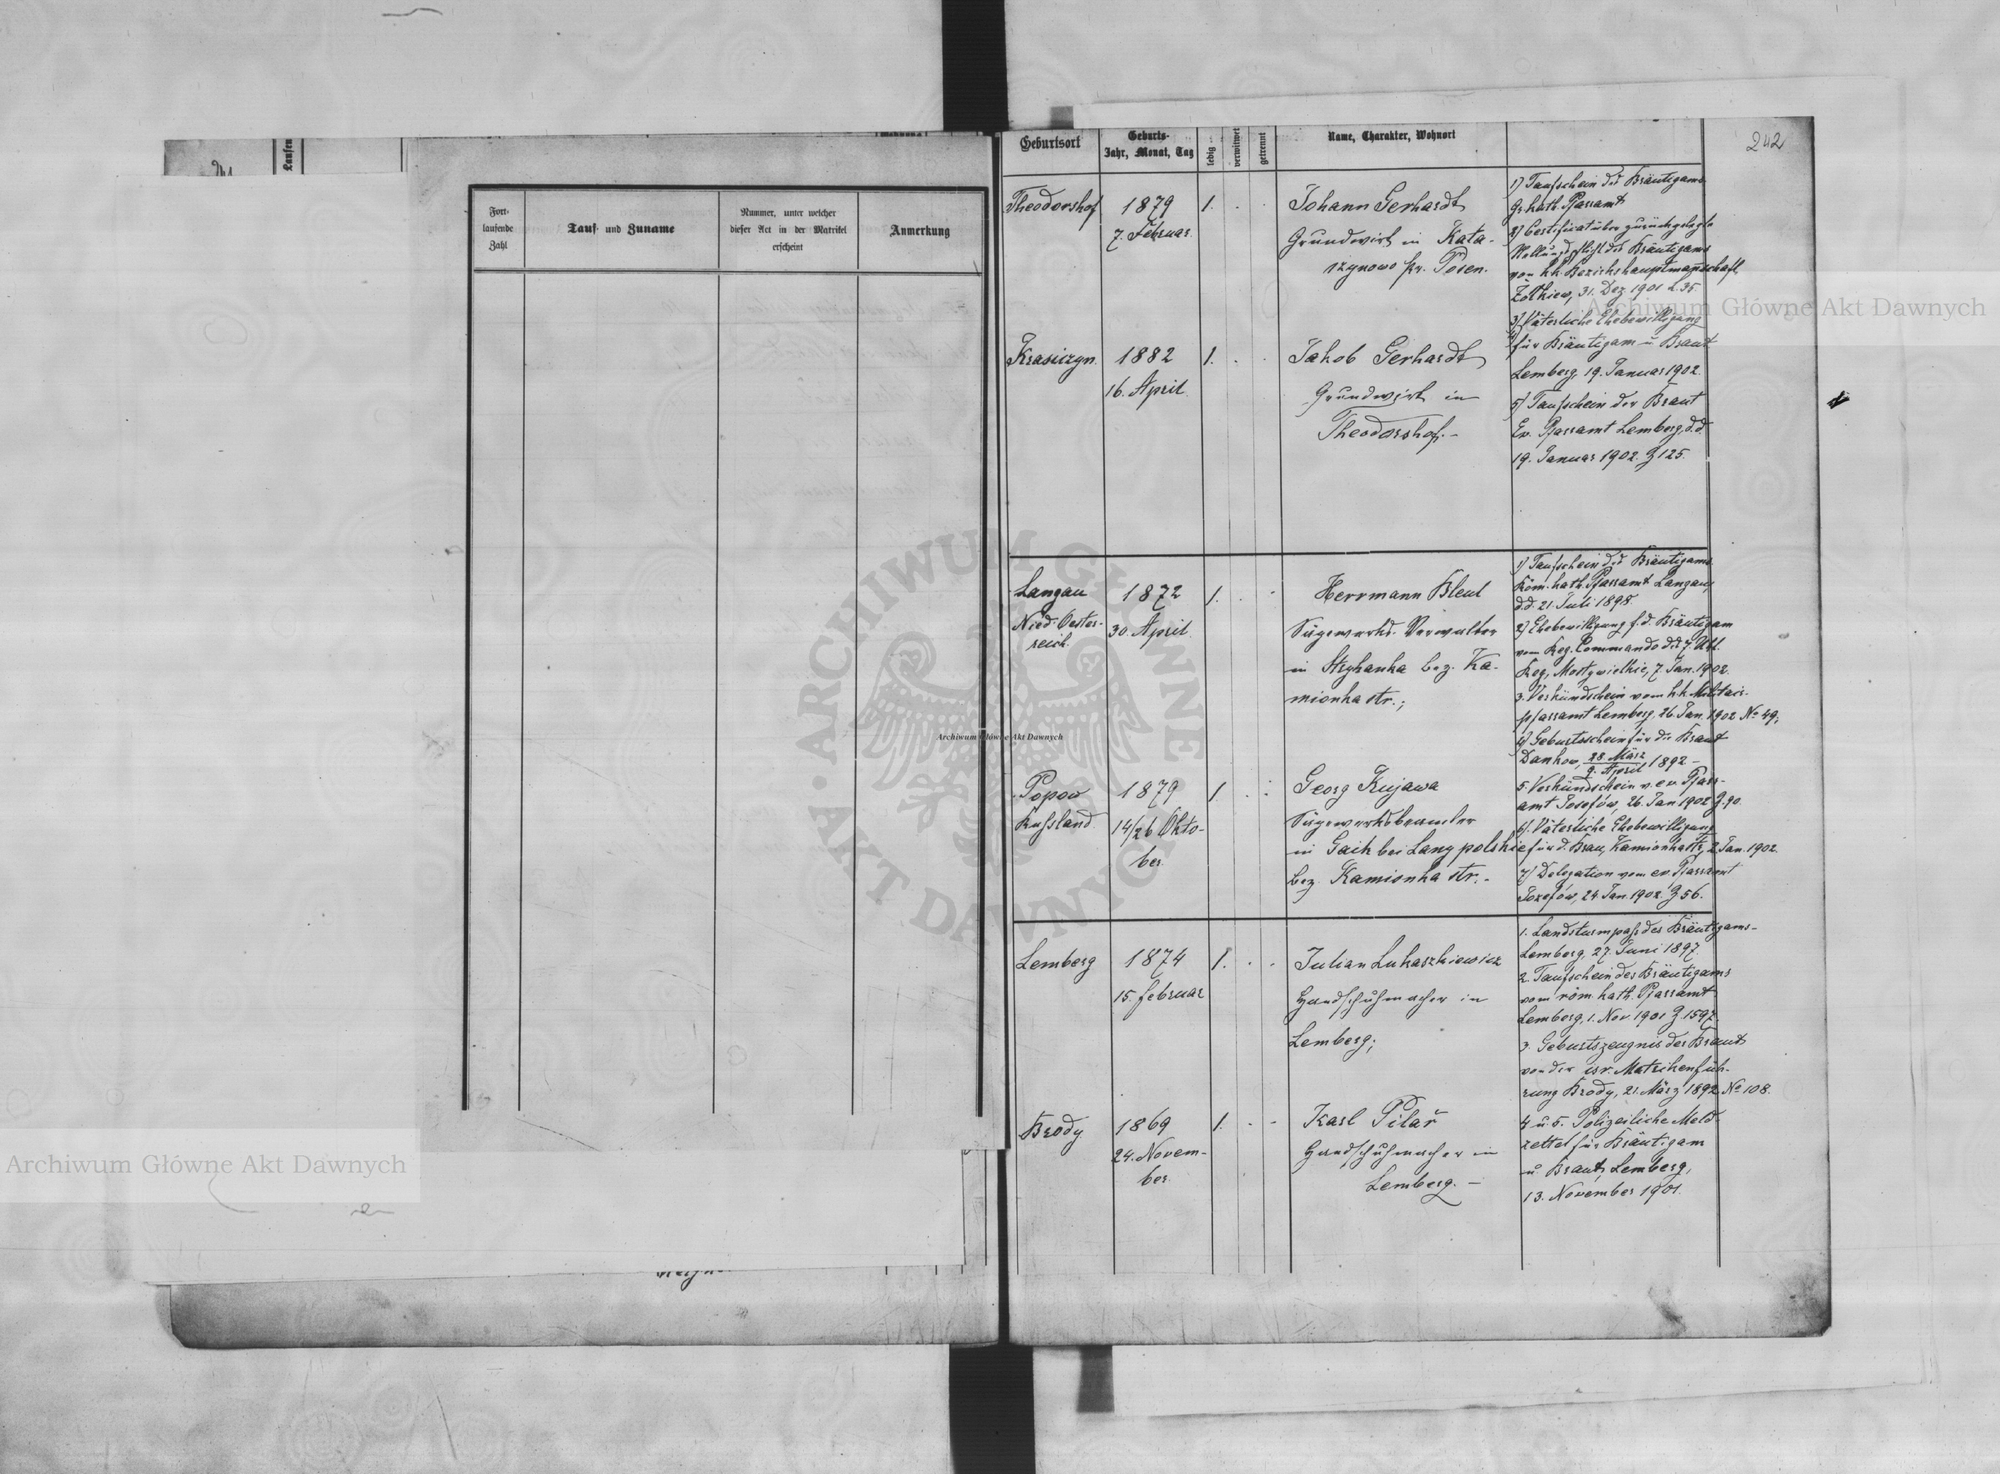 Laufen
Fort-
laufende
Zahl
Tauf- und Zuname
Nummer, unter welcher
dieser Act in der Matrikel
erscheint
Anmerkung
242
Geburtsort
Geburts-
Jahr, Monat, Tag
ledig
verwitwet
getrennt
Name, Charakter, Wohnort
Theodorshof
1879
7. Februar.
1.
Johann Gerhardt
Grundwirt in Kata-
rzynowo pr. Posen.
1) Taufschein des Bräutigams
Gr. kath. Pfarramt
2) Certificat über zurückgelegte
Stellungspflicht des Bräutigams
von k.k. Bezirkshauptmannschaft
Żółkiew, 31. Dez. 1901 Z. 35
3) Väterliche Ehebewilligung
für Bräutigam u. Braut
Lemberg, 19. Januar 1902.
5) Taufschein der Braut
Ev. Pfarramt Lemberg, d.d.
19. Januar 1902. Z 125.
Krasiczyn.
1882
16. April.
1.
Jakob Gerhardt
Grundwirt in
Theodorshof.-
Langau
Nied. Oester-
reich.
1872
30. April.
1.
Herrmann Bleul
Sägewerks-Verwalter
in Stryhanka bez. Ka-
mionka str.;
1) Taufschein des Bräutigams
Röm. kath. Pfarramt Langau,
d.d. 21. Juli 1898.
2) Ehebewilligung f. d. Bräutigam
vom Reg. Commando des 7. Uhl.
Reg. Mosty wielkie, 7. Jan. 1902.
3. Verkündschein vom k.k. Militair-
pfarramt Lemberg, 26. Jan. 1902 No 49;
4) Geburtsschein für die Braut
Dankow, 28. März
9. April 1892 -
5. Verkündschein v. ev. Pfarr-
amt Josefów, 26. Jan 1902 Z. 90.
6). Väterliche Ehebewilligung
für d. Brau, Kamionka str., 2. Jan. 1902.
7) Delegation vom ev. Pfarramt
Josefów, 24. Jan. 1902. Z 56.
Popow
Russland
1879
14/26 Okto-
ber
1.
Georg Kujawa
Sägewerksbeamter
in Gaik bei Lany polskie
bez. Kamionka str.-
Lemberg
1874
15. Februar
1.
Julian Lukaszkiewicz
Handschuhmacher in
Lemberg;
1. Landsturmpass des Bräutigams-
Lemberg, 27. Juni 1897.
2. Taufschein des Bräutigams
vom röm. kath. Pfarramt
Lemberg, 1. Nov 1901 Z. 1597.
3. Geburtszeugnis der Braut
von der isr. Matrikenfüh-
rung Brody, 21. März 1892 No 108.
4 u. 5. Polizeiliche Meld-
zettel für Bräutigam
u. Braut, Lemberg,
13. November 1901.
Brody
1869
24. Novem-
ber.
1.
Karl Pilař
Handschuhmacher in
Lemberg. -
Archiwum Główne Akt Dawnych
Archiwum Główne Akt Dawnych
Archiwum Główne Akt Dawnych
ARCHIWUM GŁÓWNE AKT DAWNYCH